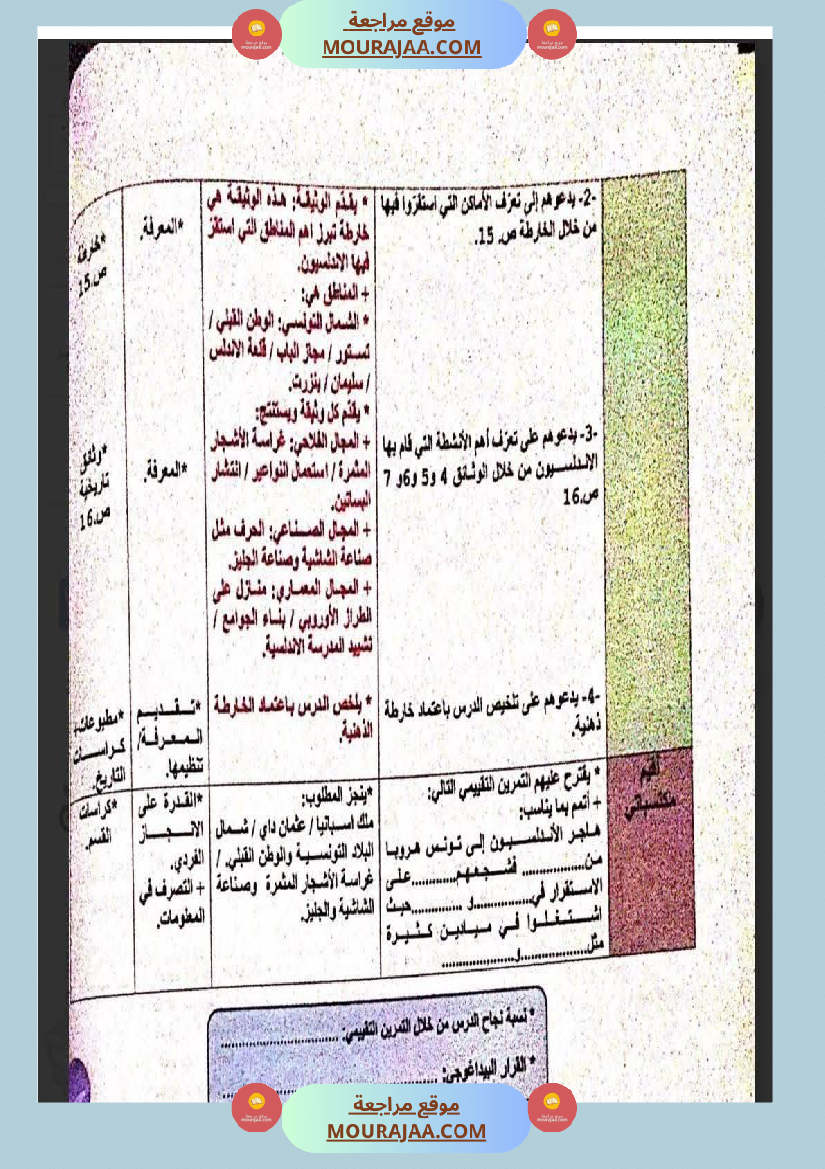 موقع مراجعة
MOURAJAA.COM
-2- يدعوهم إلى تعرّف الأماكن التي استقرّوا فيها
من خلال الخارطة ص. 15.
* يقدّم الوثيقة: هذه الوثيقة هي
خارطة تبرز أهم المناطق التي استقرّ
فيها الاندلسيون.
+ المناطق هي:
* الشمال التونسي: الوطن القبلي /
تستور / مجاز الباب / قلعة الاندلس
/ سليمان / بنزرت.
*المعرفة.
*خارطة
ص.15
-3- يدعوهم على تعرّف أهم الأنشطة التي قام بها
الاندلسيون من خلال الوثائق 4 و5 و6و 7
ص.16
* يقدّم كل وثيقة ويستنتج:
+ المجال الفلاحي: غراسة الأشجار
المثمرة / استعمال النواعير / انتشار
البساتين.
+ المجال الصناعي: الحرف مثل
صناعة الشاشية وصناعة الجليز.
+ المجال المعماري: منازل على
الطراز الأوروبي / بناء الجوامع /
تشييد المدرسة الاندلسية.
*المعرفة.
*وثائق
تاريخية
ص.16
-4- يدعوهم على تلخيص الدرس باعتماد خارطة
ذهنية.
* يلخص الدرس باعتماد الخارطة
الذهنية.
*تقديم
المعرفة/
تنظيمها.
*مطبوعات،
كراسات
التاريخ.
أقيم
مكتسباتي
* يقترح عليهم التمرين التقييمي التالي:
+ أتمم بما يناسب:
هاجر الأندلسيون إلى تونس هروبا
من................ فشجعهم............على
الاستقرار في..............و ............حيث
اشتغلوا في ميادين كثيرة
مثل.................و...................
*ينجز المطلوب:
ملك اسبانيا / عثمان داي / شمال
البلاد التونسية والوطن القبلي. /
غراسة الأشجار المثمرة وصناعة
الشاشية والجليز.
*القدرة على
الانجاز
الفردي.
+ التصرف في
المعلومات.
*كراسات
القسم.
* نسبة نجاح الدرس من خلال التمرين التقييمي: ..............................
* القرار البيداغوجي: ..............................
موقع مراجعة
MOURAJAA.COM